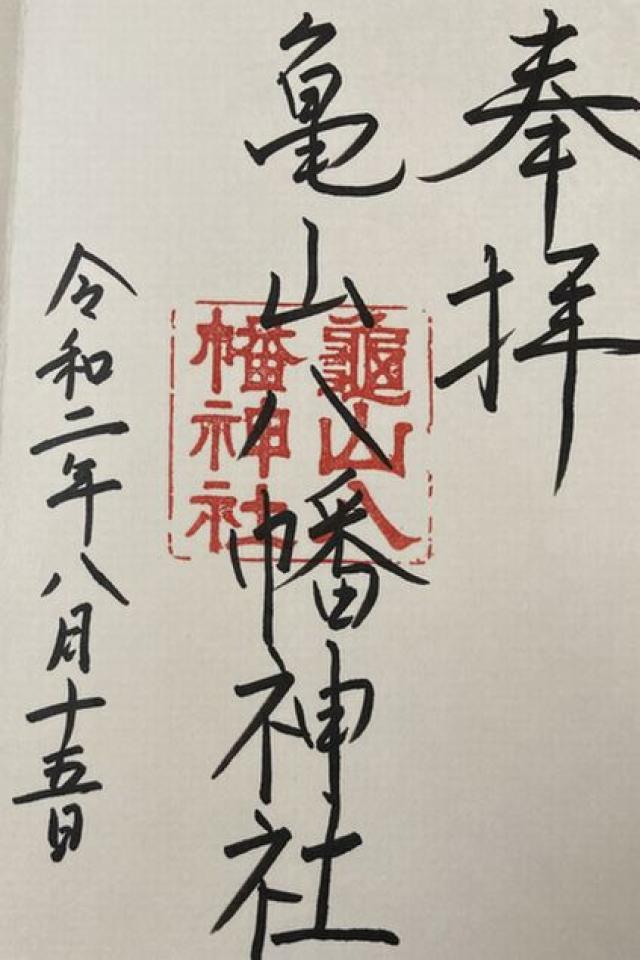 奉拝
亀山八幡神社
龜山八
幡神社
令和二年八月十五日